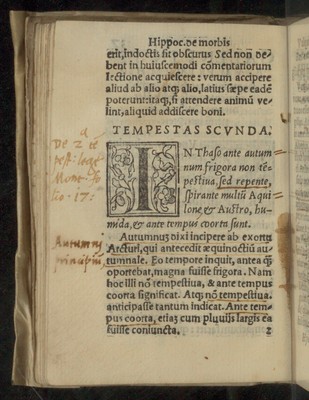 Hippoc. de morbis
erit, indoctis sit obscurus Sed non de-
bent in huiuscemodi cõmentariorum
lectione acquiescere: verum accipere
aliud ab alio atq; alio, latius sæpe eadẽ
poterunt: itaq; si attendere animũ ve-
lint, aliquid addiscere boni.
TEMPESTAS SCVNDA.
IN Thaso ante autum
num frigora non tẽ-
pestiua, sed repente,
spirante multũ Aqui
lone, & Austro, hu-
mida, & ante tempus coorta sunt.
Autumnus dixi incipere ab exortu
Arcturi, qui antecedit æquinoctiũ au-
tumnale. Eo tempore inquit, antea q̃
oportebat, magna fuisse frigora. Nam
hoc illi nõ tempestiua, & ante tempus
coorta significat. Atq; nõ tempestiua.
anticipasse tantum indicat. Ante tem-
pus coorta, etiaʒ cum pluuijs largis ea
fuisse coniuncta. 2
a
De 2
17:
Autumnus